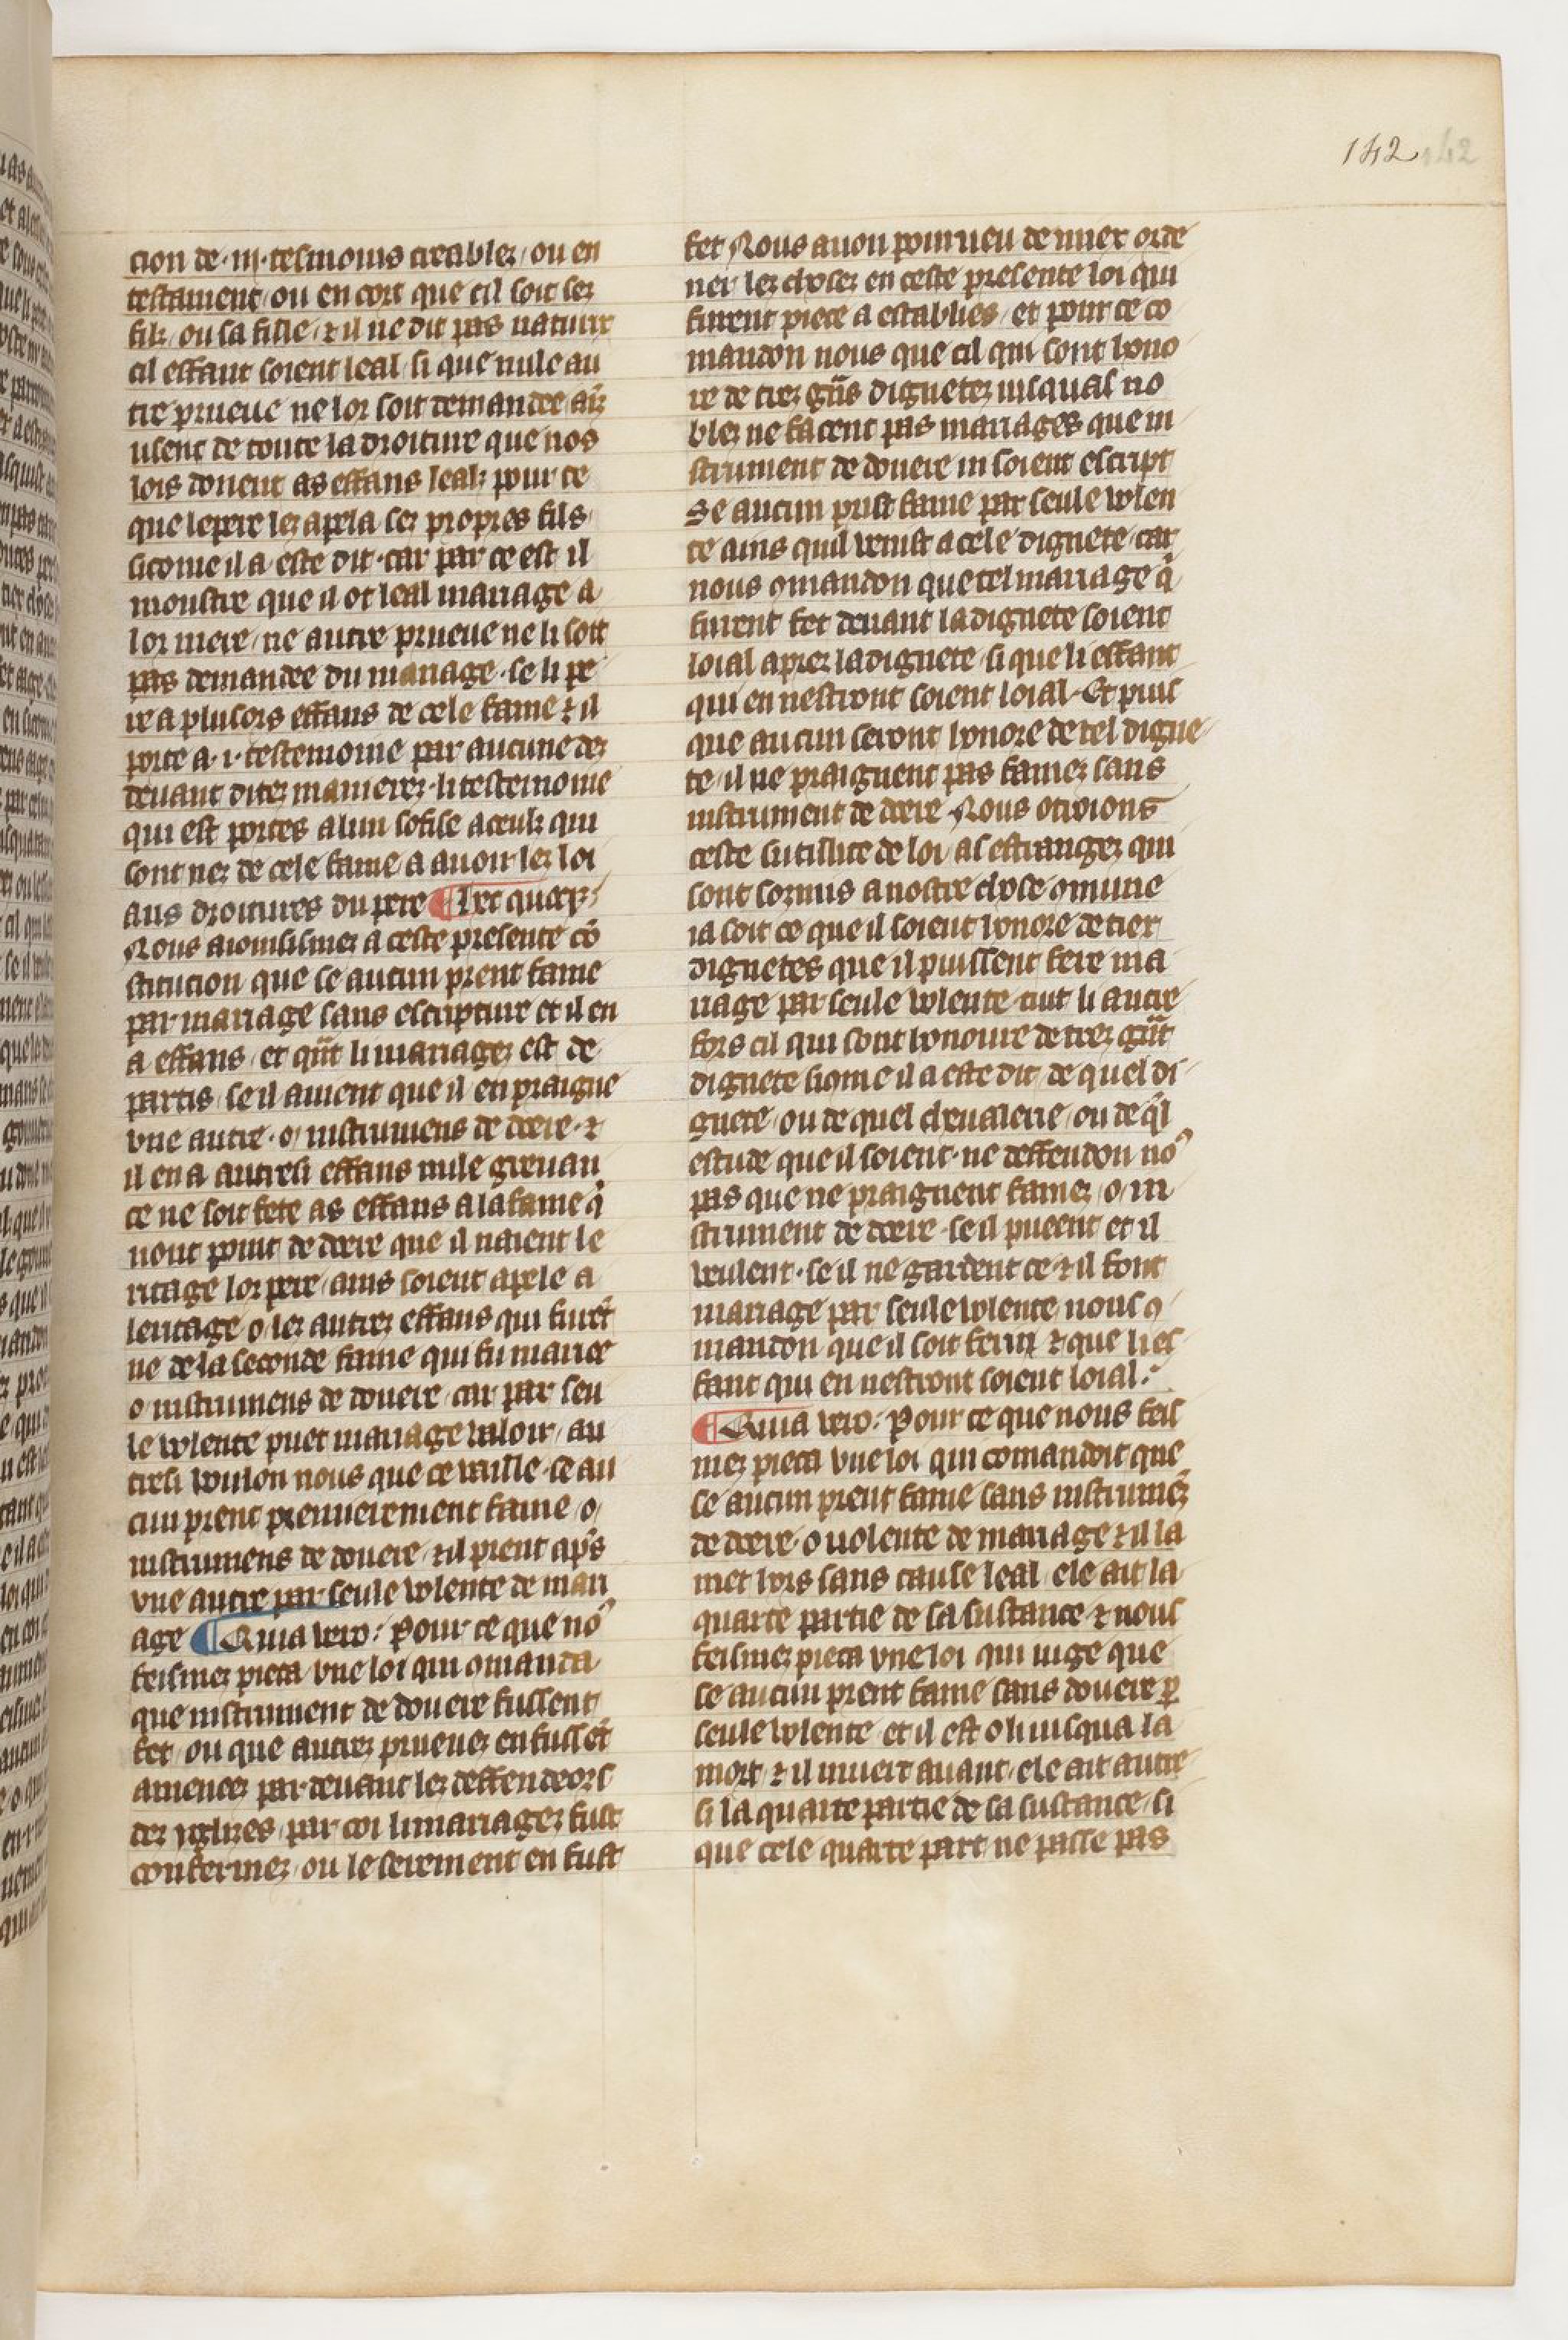 142 142
cion de .iii. tesmoins creables / ou en
testament / ou en cort que cil soit ses
filz / ou sa fille / ⁊ il ne dit pas naturer
cil effant soient leal / si que nule au
tre prueue ne lor soit demandee /
usent de toute la droiture que nos
lois donent as effans lealz pour ce
que le pere les apela ses propres fils
sicome il a este dit · car par ce est il
monstre que il ot leal mariage a
lor mere / ne autre prueue ne li soit
pas demandee du mariage · se li pe
re a plusors effans de cele fame ⁊ il
porte a .i. testemoine par aucune des
deuant dites manieres · li testemoine
qui est portes a lun sofise a ceulz qui
sont nez de cele fame / a auoir les loi
aus droitures du pere ¶
Nous aioinsismes a ceste presente cō
stitucion que se aucun prent fame
par mariage sans escripture et il en
a effans / et qñt li mariages est de
partis / se il auient que il en praigne
vne autre · o / instrumens de doere · ⁊
il en a autresi effans nule greuan
ce ne soit fete as effans a la fame q̄
nont point de doere que il naient le
ritage lor pere / ains soient apele a
leritage o les autres effans qui furēt
ne de la seconde fame qui fu mariee
o instrumens de douere / car par seu
le volente puet mariage valoir / au
tresi voulon nous que ce vaille · se au
cun prent premierement fame / o /
instrumens de douere / ⁊ il prent ap̄s
vne autre par seule volente de mari
age ¶ Quia vero: Pour ce que nō
feismes pieca vne loi qui omanda
que instrument de douere fussent
fet / ou que autres prueues en fussēt
amenees par deuant les deffendeors
des yglises / par coi li mariages fust
confermes / ou le serement en fust
fet Nous auon pourueu de muer orde
ner les choses en ceste presente loi qui
furent piece a establies / et pour ce co
mandon nous que cil qui sont hono
re de tres gñs dignetes iusquas no
bles ne facent pas mariages que in
strument de douere ni soient escript
Se aucun prist fame par seule volen
te ains quil venist a cele dignete / car
nous omandon que tel mariage q̄
furent fet deuant la dignete soient
loial apres la dignete / si que li effant
qui en nestront soient loial · Et puis
que aucun seront honore de tel digne
te / il ne praignent pas fames sans
instrument de doere Nous otroions
ceste sutillite de loi / as estranges qui
sont sozmis a nostre chose omune
ia soit ce que il soient honore de tiex
dignetes que il puissent fere ma
riage par seule volente tuit li autre
fors cil qui sont honoure de tres gñt
dignete sicome il a este dit / de quel di
gnete / ou de quel cheualerie / ou de q̄l
estude que il soient · ne deffendon nō
pas que ne praignent fames / o / in
strument de doere · se il pueent et il
veulent · se il ne gardent ce ⁊ il font
mariage par seule volente / nous o
mandon que il soit ferm ⁊ que li ef
fant qui en nestront soient loial :
¶ Quia vero: Pour ce que nous feis
mes pieca vne loi qui comandoit que
se aucun prent fame sans instrumēs
de doere · o volente de mariage ⁊ il la
met hors sans cause leal / ele ait la
quarte partie de sa sustance ⁊ nous
feismes pieca vne loi qui iuge que
se aucun prent fame sans douere p̱
seule volente et il est o li iusqua la
mort / ⁊ il muert auant / ele ait autre
si la quarte partie de sa sustance / si
que cele quarte part ne passe pas